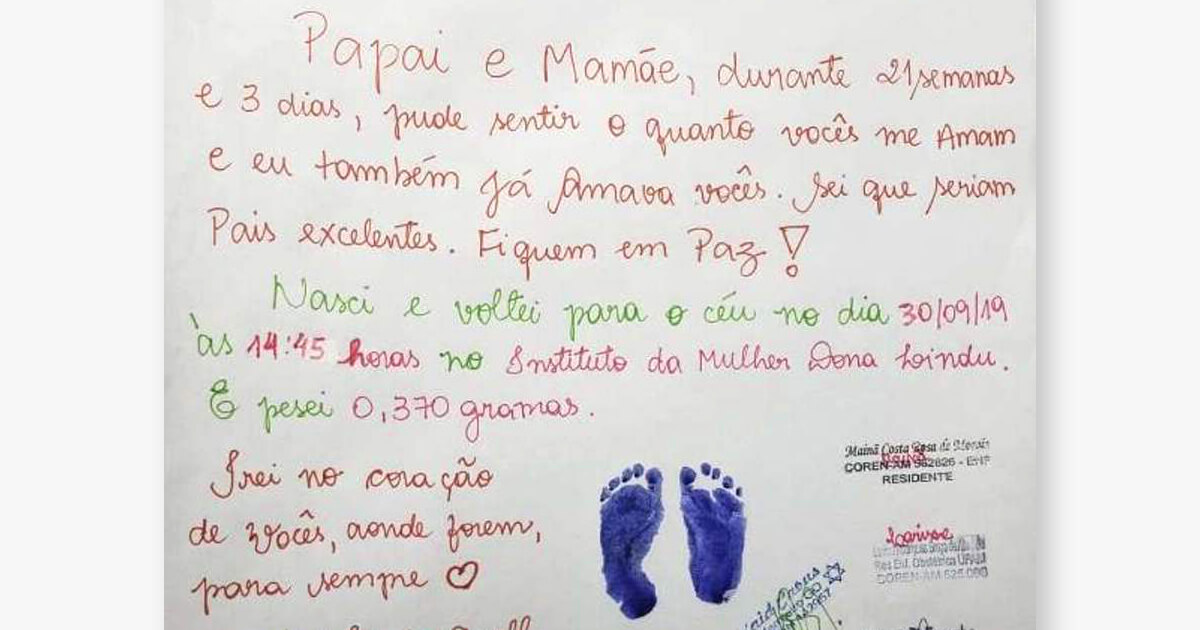 Papai e Mamãe, durante 21 semanas
e 3 dias, pude sentir o quanto vocês me Amam
e eu também já Amava vocês. Sei que seriam
Pais excelentes. Fiquem em Paz!
Nasci e voltei para o céu no dia 30/09/19
às 14:45 horas no Instituto da Mulher Dona Lindu.
E pesei 0,370 gramas.
Irei no coração
de vocês, aonde forem,
para sempre
Mainã Costa Rosa de Morais
COREN-AM
RESIDENTE
COREN-AM